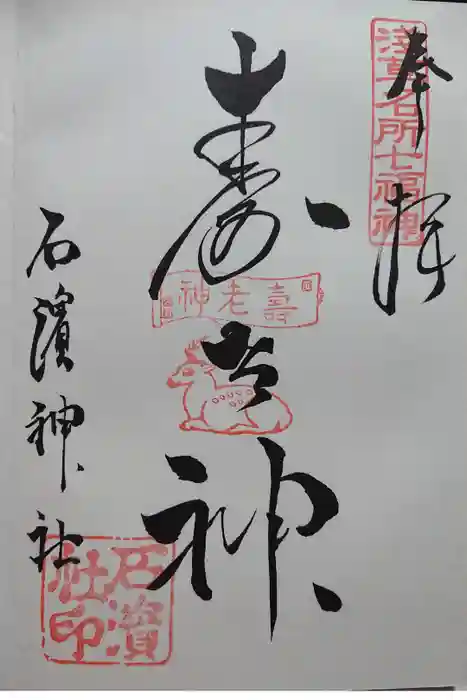 奉拝
淺草名所七福神
壽老神
壽老神
石濱神社
石濱
社印